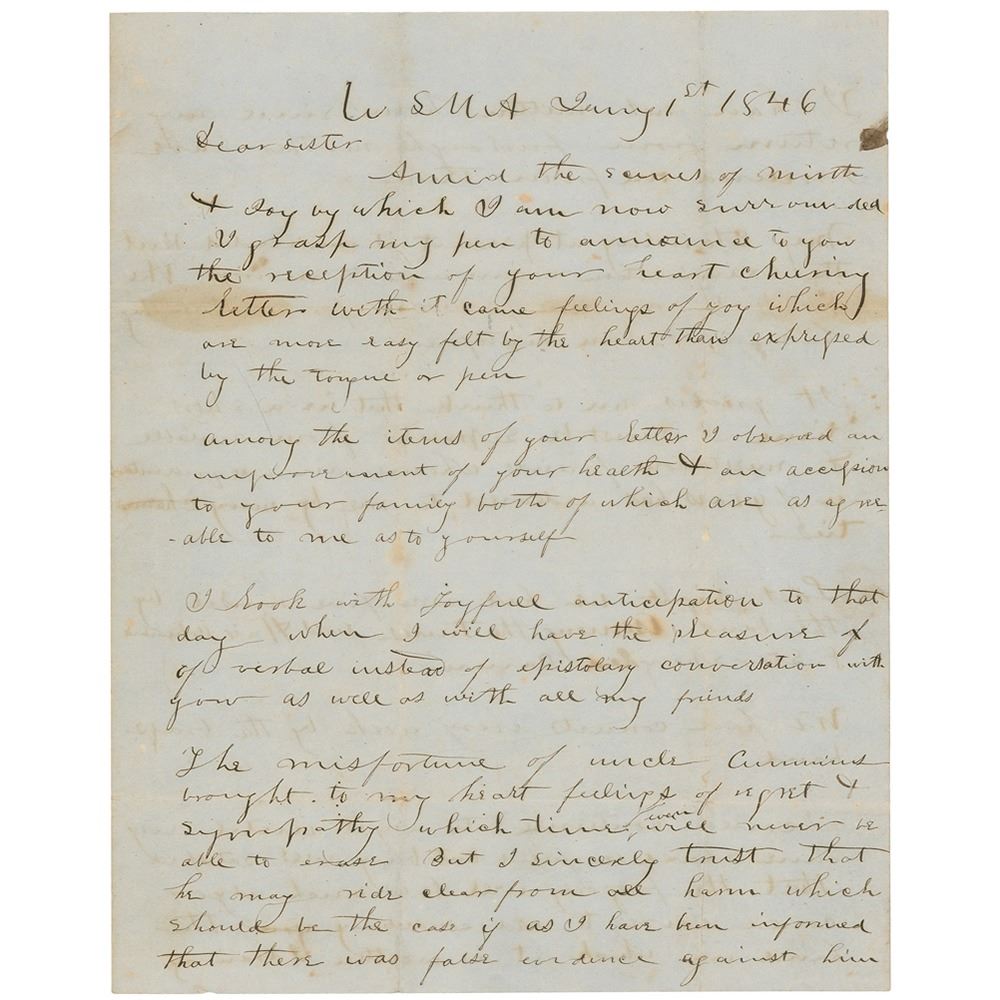 W S M A Jany 1st 1846
Dear sister
Amid the scenes of mirth
& Joy by which I am now surrounded
I grasp my pen to announce to you
the reception of your heart cheuring
letter with it came feelings of yoy which
are more easy felt by the heart than expressed
by the tongue or pen
among the items of your letter I observed an
improvement of your health & an accession
to your family both of which are as agree
-able to me as to yourself
I look with Joyfull anticipation to that
day when I will have the pleasure of
of verbal instead of epistolary conversation with
you as well as with all my friends
The misfortune of uncle Cummins
brought to my heart feelings of regret &
sympathy which time even will never be
able to erase But I sincerely trust that
he may ride clear from all harm which
should be the case if as I have been informed
that there was false evidence against him